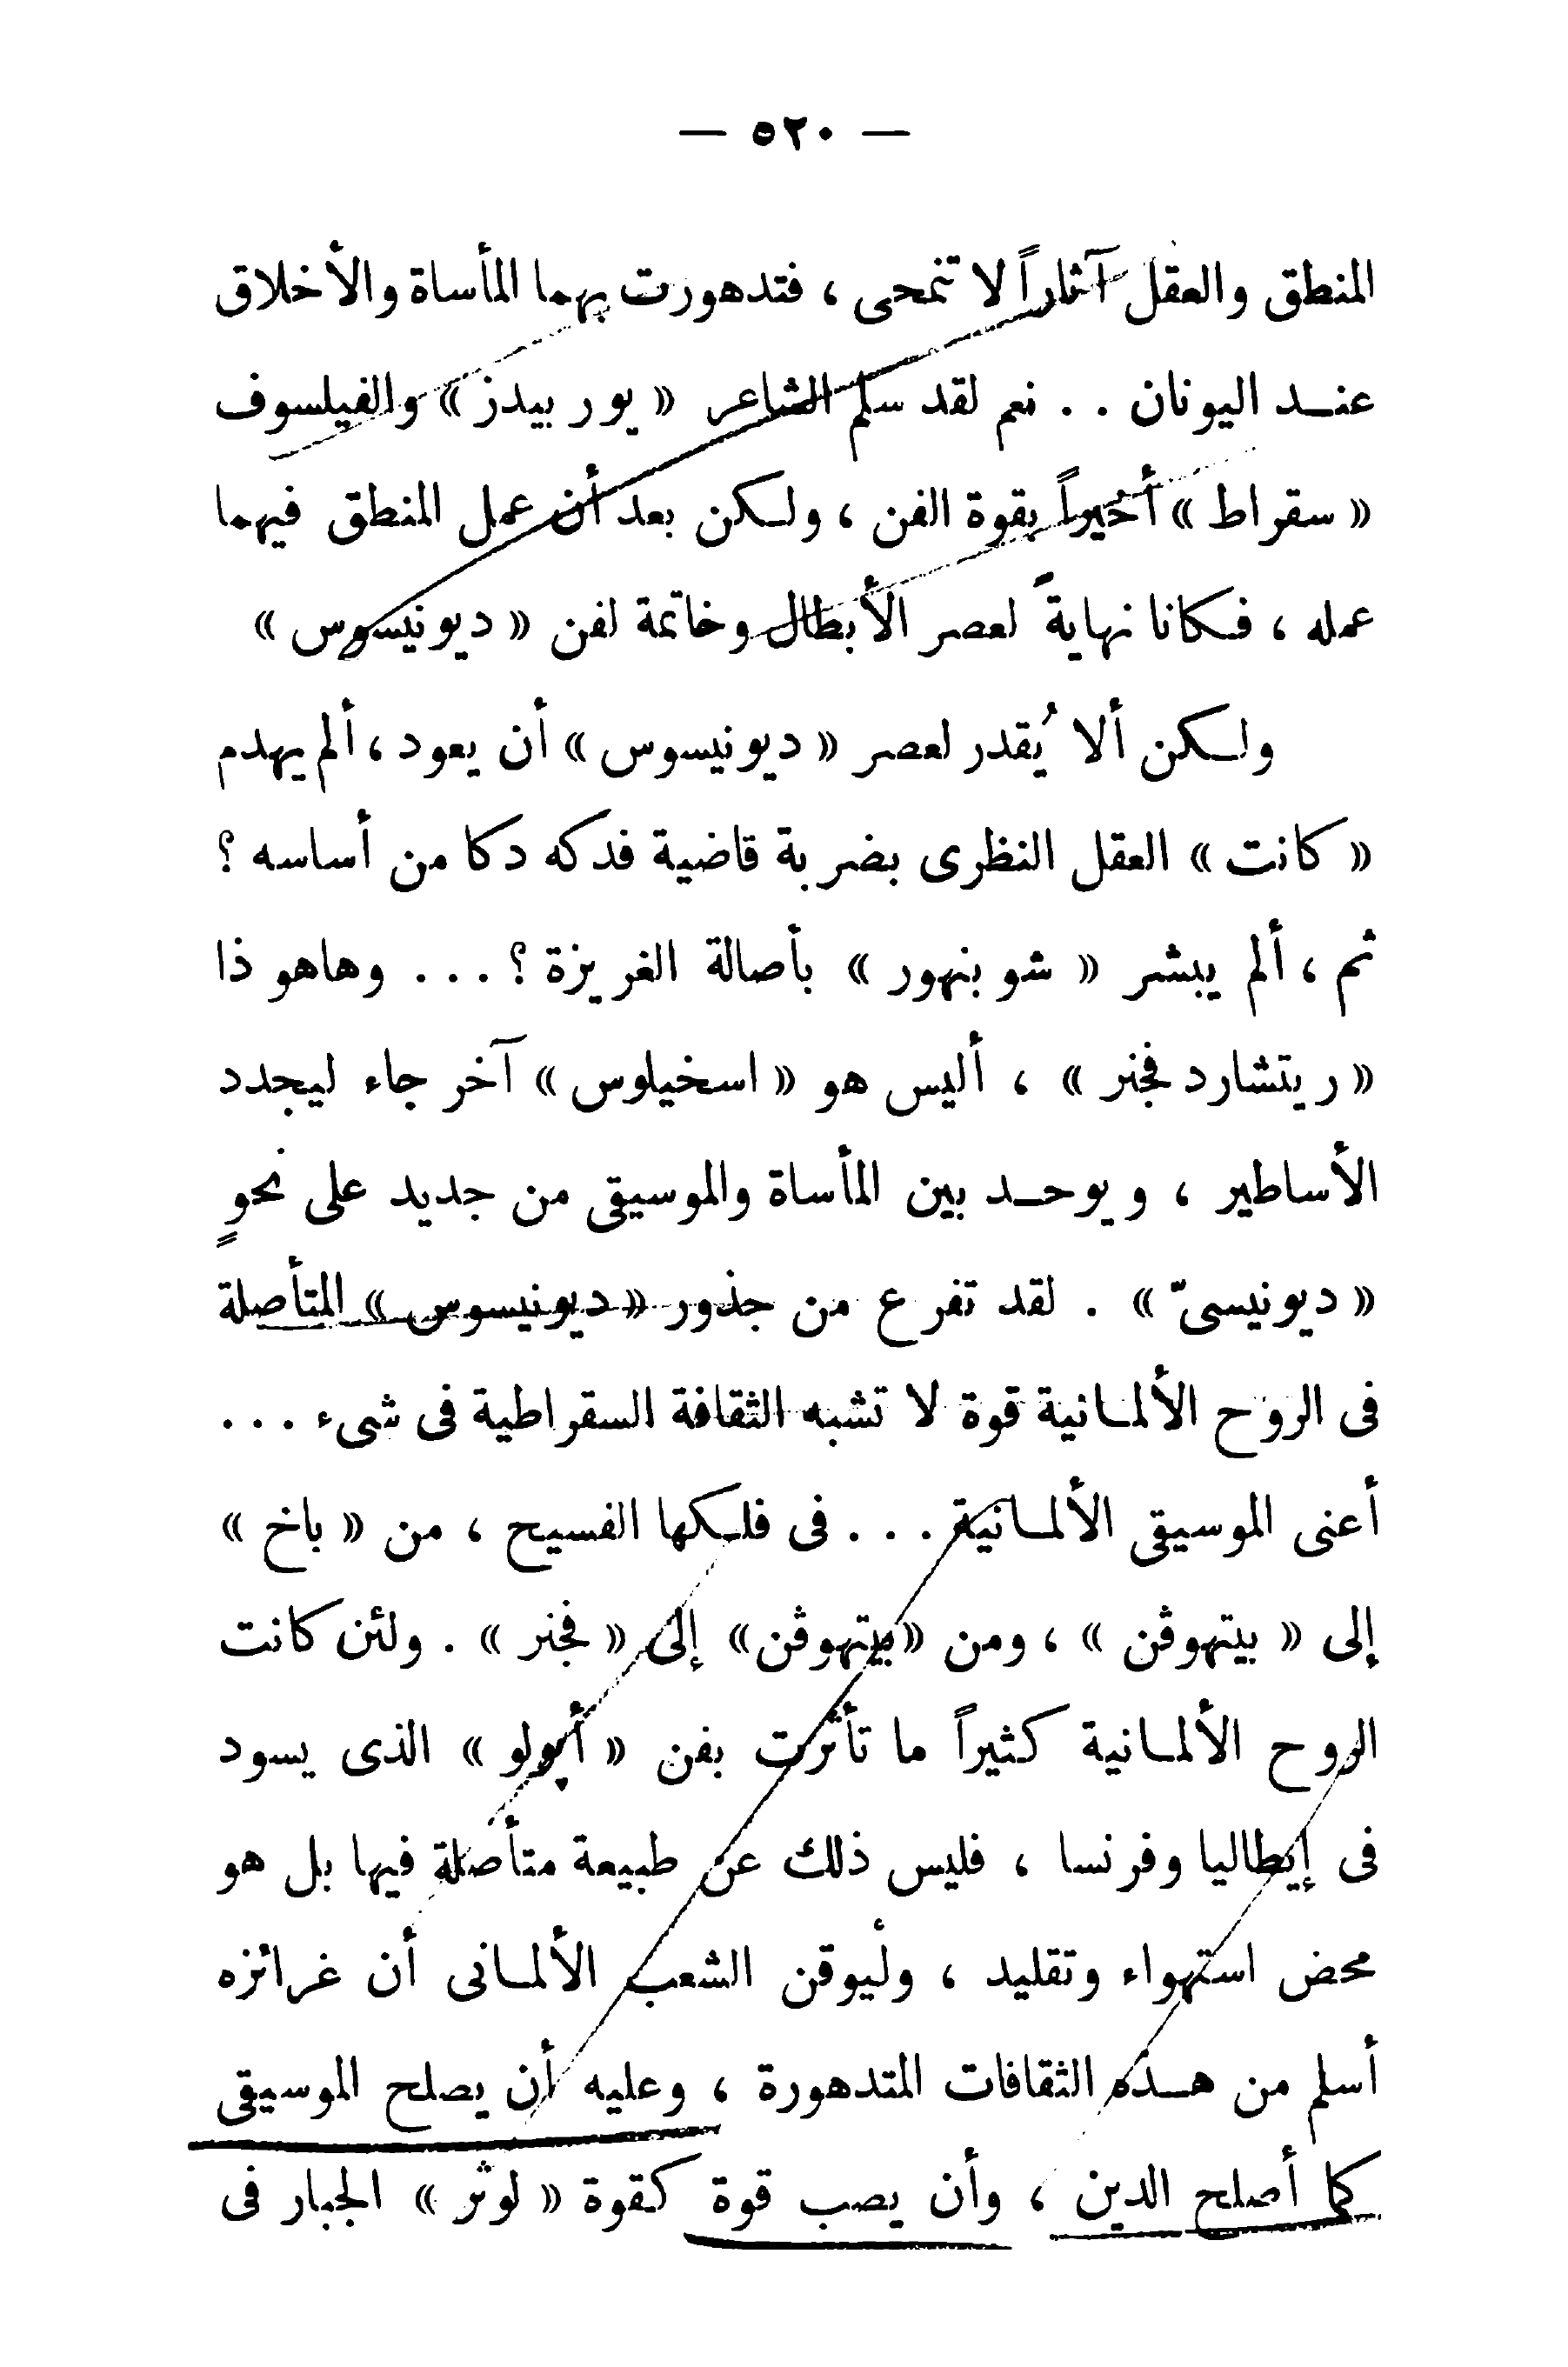 — ٥٢٠ —
المنطق والعقل آثاراً لا تنمحى ، فتدهورت بهما المأساة والأخلاق
عنـد اليونان . . نعم لقد سلم الشاعر « يور بيدز » والفيلسوف
« سقراط » أخيراً بقوة الفن ، ولـكن بعد أن عمل المنطق فيهما
عمله ، فـكانا نهايةً لعصر الأبطال وخاتمة لفن « ديونيسوس »
ولـكن ألا يُقدر لعصر « ديونيسوس » أن يعود ، ألم يهدم
« كانت » العقل النظرى بضربة قاضية فدكه دكا من أساسه ؟
ثم ، ألم يبشر « شوبنهور » بأصالة الغريزة ؟ . . . وهاهو ذا
« ريتشارد فجنر » ، أليس هو « اسخيلوس » آخر جاء ليجدد
الأساطير ، ويوحـد بين المأساة والموسيقى من جديد على نحوٍ
« ديونيسىّ » . لقد تفرع من جذور « ديونيسوس » المتأصلة
فى الروح الألمـانية قوة لا تشبه الثقافة السقراطية فى شىء . . .
أعنى الموسيقى الألمـانية . . . فى فلـكها الفسيح ، من « باخ »
إلى « بيتهوڤن » ، ومن « بيتهوڤن » إلى « فجنر » . ولئن كانت
الروح الألمـانية كثيراً ما تأثرت بفن « أپولو » الذى يسود
فى إيطاليا وفرنسا ، فليس ذلك عن طبيعة متأصلة فيها بل هو
محض استهواء وتقليد ، وليوقن الشعب الألمـانى أن غرائزه
أسلم من هـذه الثقافات المتدهورة ، وعليه أن يصلح الموسيقى
كما أصلح الدين ، وأن يصب قوة كقوة « لوثر » الجبار فى